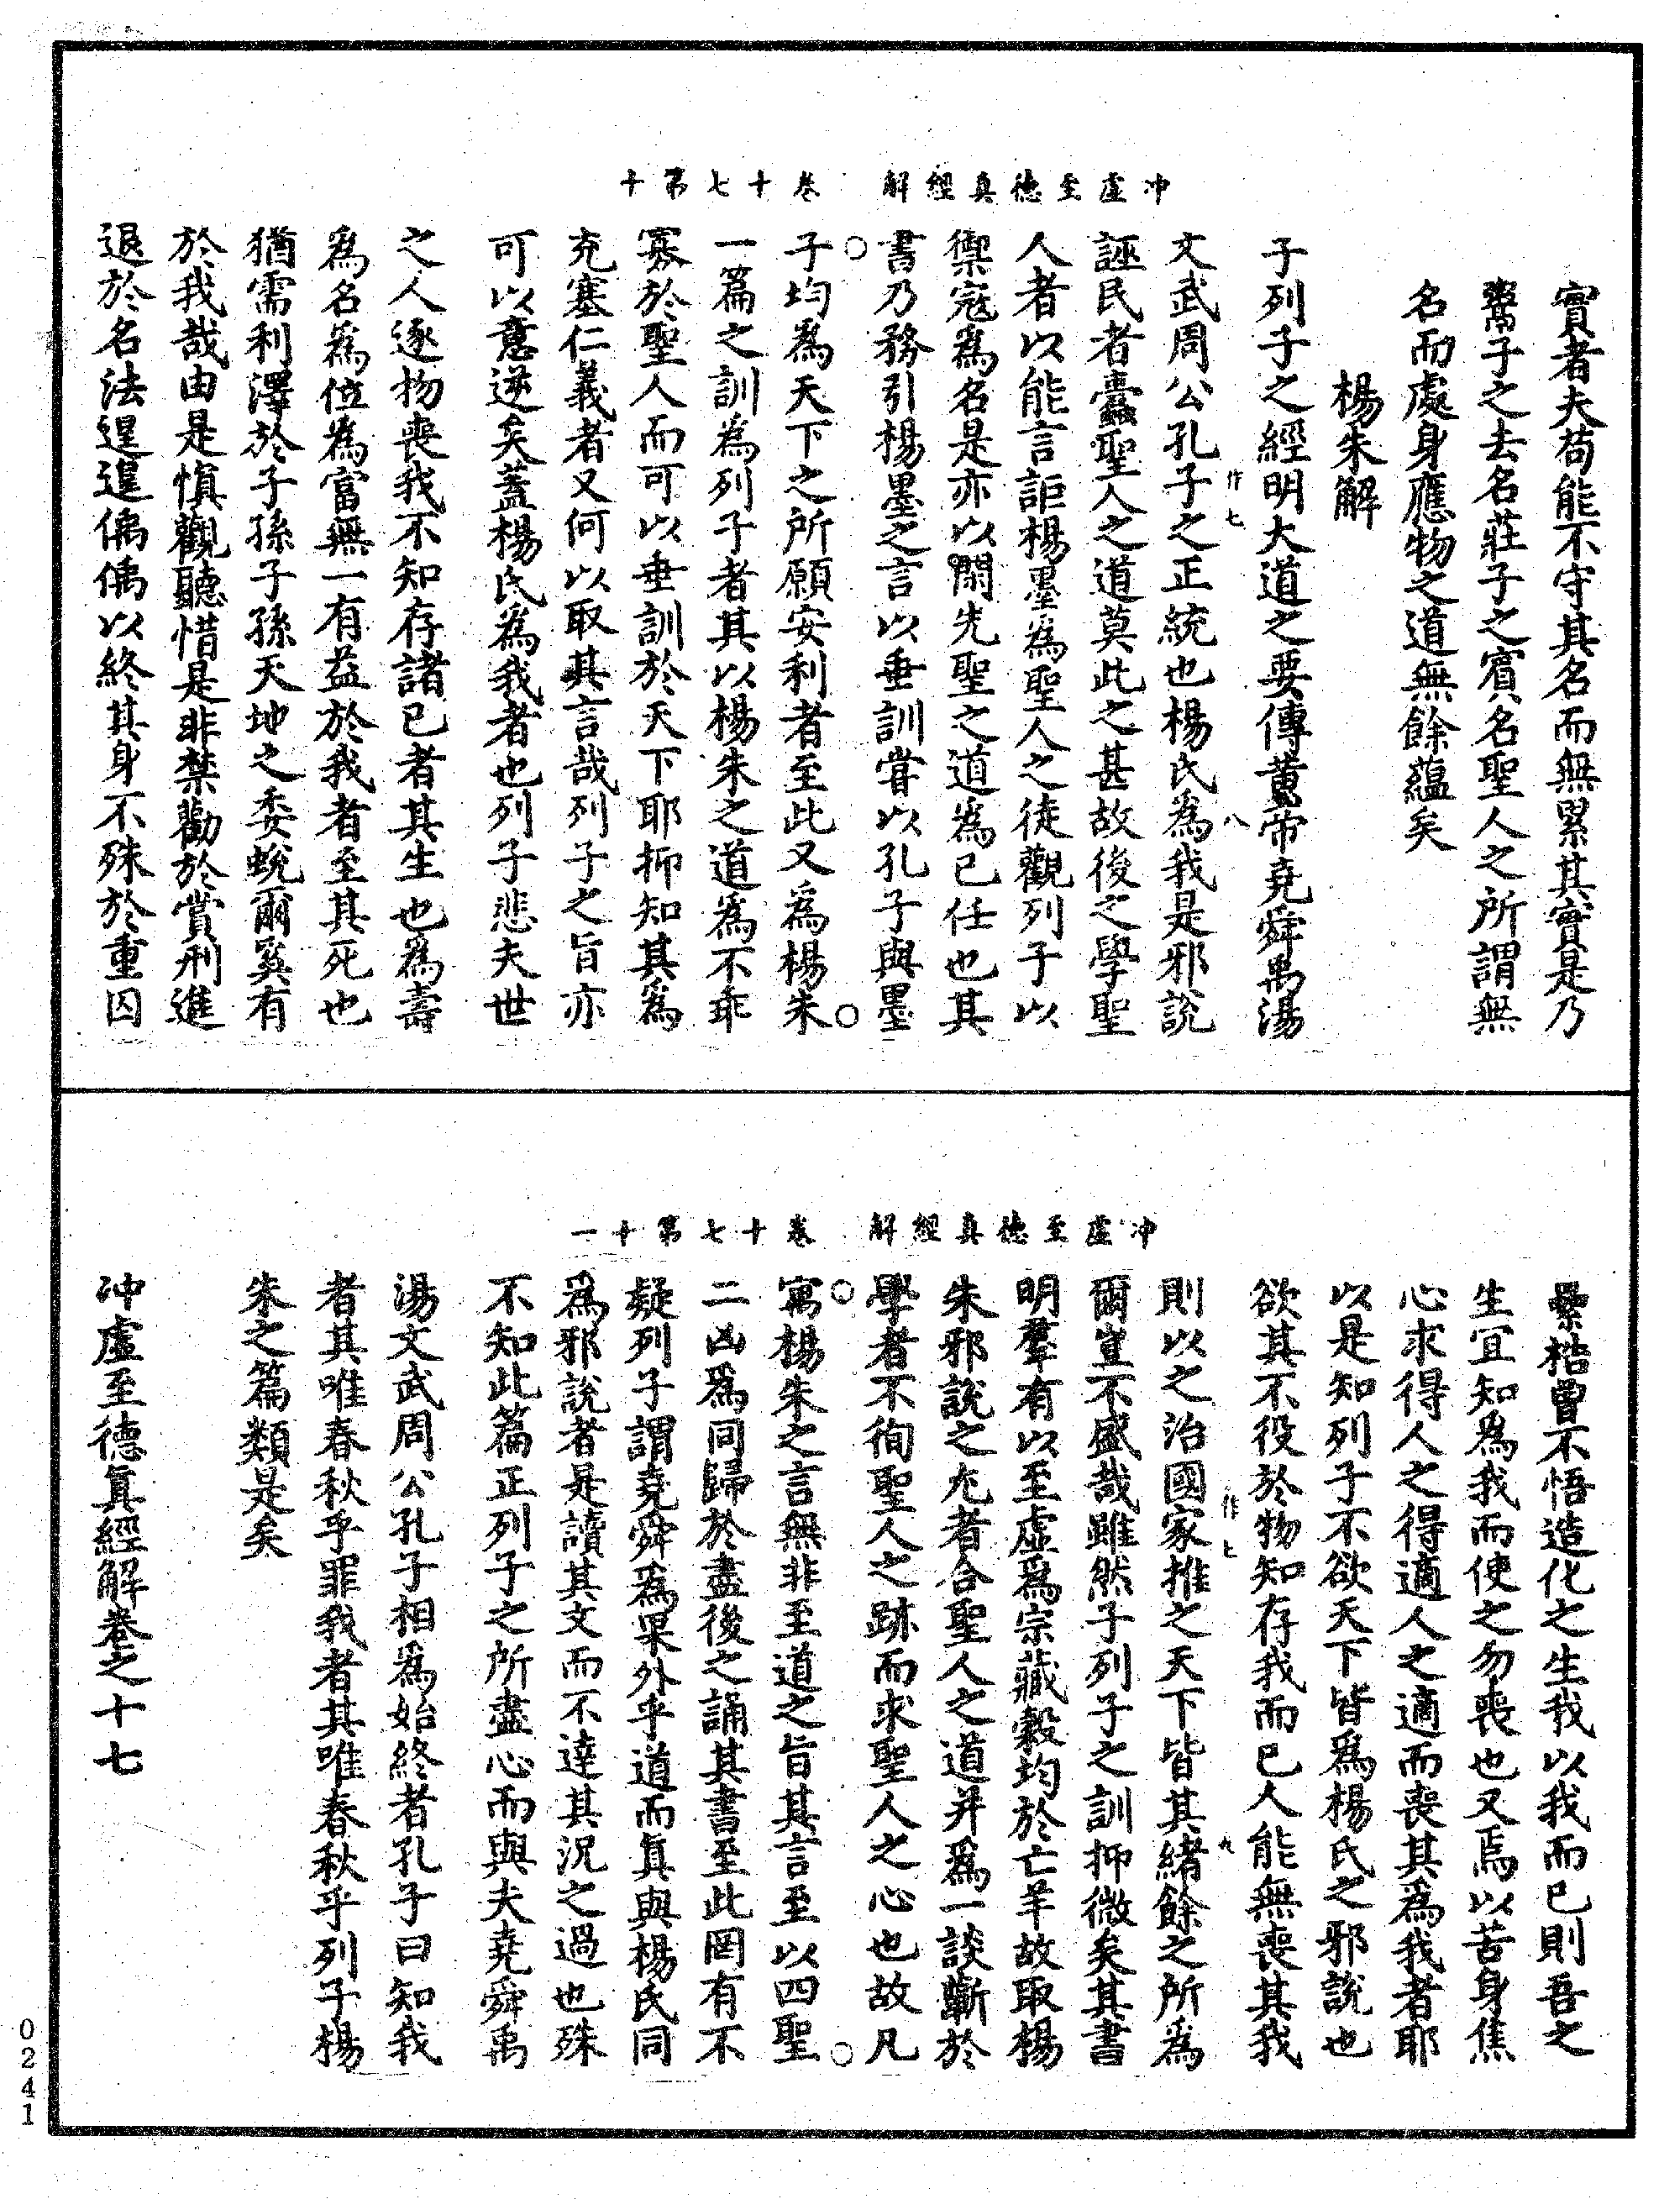 冲虛至德真經解　卷十七第十
實者夫苟能不守其名而無累其實是乃
鬻子之去名莊子之賓名聖人之所謂無
名而處身應物之道無餘蘊矣
楊朱解
子列子之經明大道之要傳黃帝堯舜禹湯
作七　八
文武周公孔子之正統也楊氏為我是邪說
誣民者蠹聖人之道莫此之甚故後之學聖
人者以能言詎楊墨為聖人之徒觀列子以
禦寇為名是亦以閑先聖之道為已任也其
書乃務引楊墨之言以垂訓嘗以孔子與墨
子均為天下之所願安利者至此又為楊朱
一篇之訓為列子者其以楊朱之道為不乖
寡於聖人而可以垂訓於天下耶抑知其為
充塞仁義者又何以取其言哉列子之旨亦
可以意逆矣蓋楊氏為我者也列子悲夫世
之人逐物喪我不知存諸已者其生也為壽
為名為位為富無一有益於我者至其死也
猶需利澤於子孫子孫天地之委蛻爾奚有
於我哉由是慎觀聽惜是非禁勸於賞刑進
退於名法遑遑偊偊以終其身不殊於重囚
冲虛至德真經解　卷十七第十一
纍梏曾不悟造化之生我以我而已則吾之
生宜知為我而使之勿喪也又焉以苦身焦
心求得人之得適人之適而喪其為我者耶
以是知列子不欲天下皆為楊氏之邪說也
欲其不役於物知存我而已人能無喪其我
作七　九
則以之治國家推之天下皆其緒餘之所為
爾豈不盛哉雖然子列子之訓抑微矣其書
明羣有以至虛為宗藏穀均於亡羊故取楊
朱邪說之尤者合聖人之道并為一談蘄於
學者不徇聖人之跡而求聖人之心也故凡
寓楊朱之言無非至道之旨其言至以四聖
二凶為同歸於盡後之誦其書至此罔有不
疑列子謂堯舜為果外乎道而真與楊氏同
為邪說者是讀其文而不達其況之過也殊
不知此篇正列子之所盡心而與夫堯舜禹
湯文武周公孔子相為始終者孔子曰知我
者其唯春秋乎罪我者其唯春秋乎列子楊
朱之篇類是矣
冲虛至德真經解卷之十七
0241